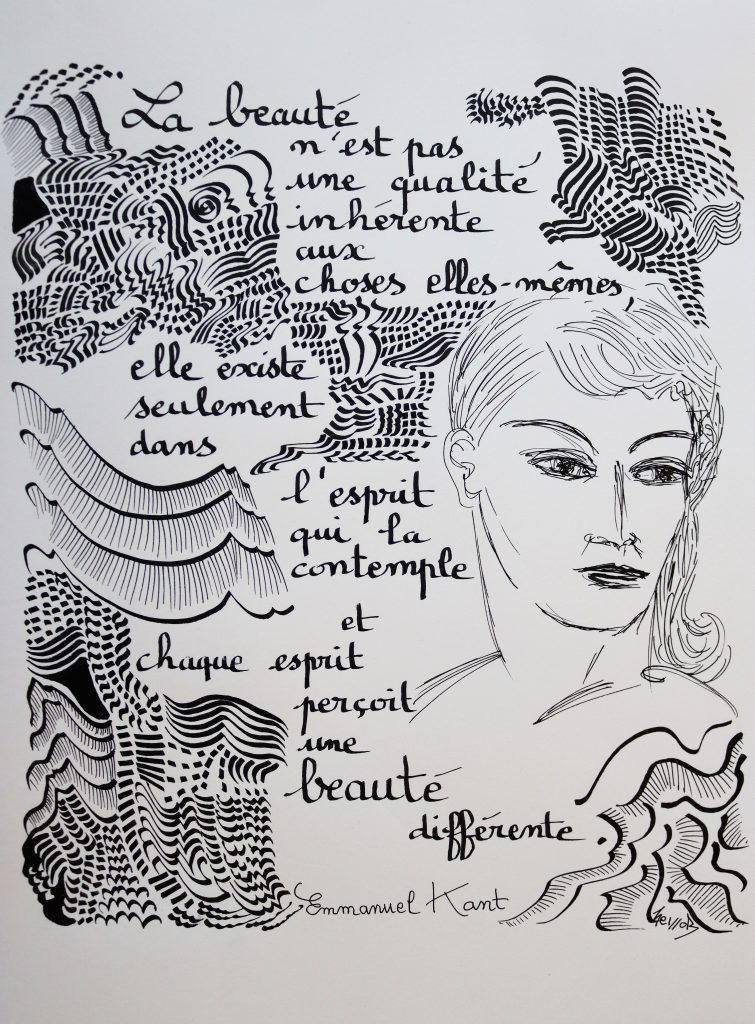 La beauté
n'est pas
une qualité
inhérente
aux
choses elles-mêmes,
elle existe
seulement
dans
l'esprit
qui la
contemple
et
chaque esprit
perçoit
une
beauté
différente.
Emmanuel Kant